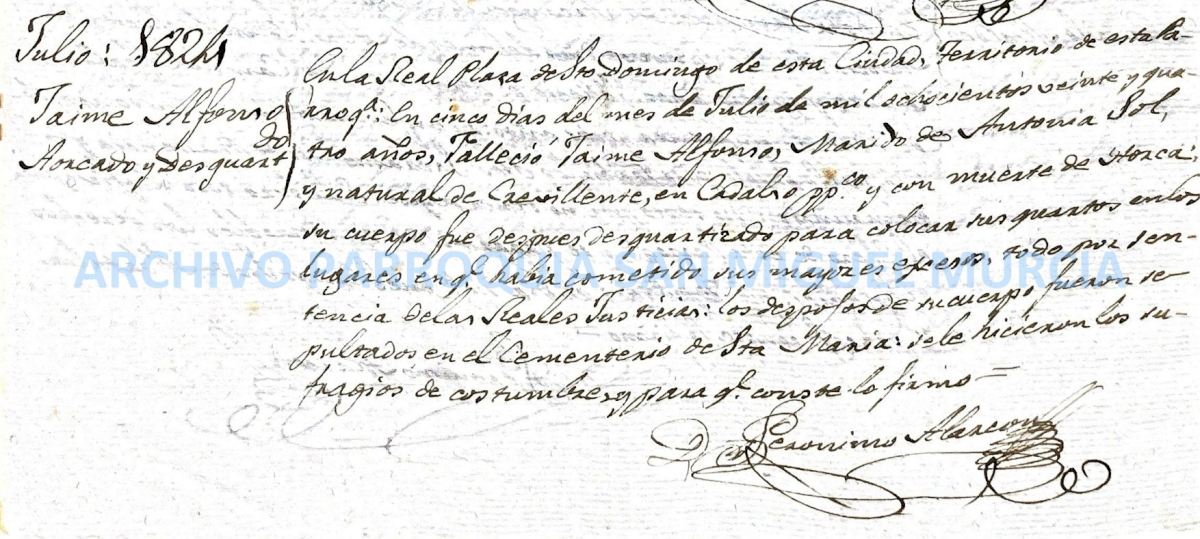 Julio: 1824
Jaime Alfonso
Aorcado y Desquartdo
En la Real Plaza de Sto Domingo de esta Ciudad, Territorio de esta Pa-
rroqa.: En cinco dias del mes de Julio de mil ochocientos veinte y qua-
tro años, Falleció Jaime Alfonso, Marido de Antonia Sol,
y natural de Crevillente, en Cadalso ppco. y con muerte de Horca:
su cuerpo fue despues desquartizado para colocar sus quartos en los
lugares en q. habia cometido sus mayores excesos, todo por sen-
tencia de las Reales Justicias: los despojos de su cuerpo fueron se-
pultados en el Cementerio de Sta Maria: se le hicieron los su-
fragios de costumbre, y para q. conste lo firmo=
Dn Geronimo Alarcon
ARCHIVO PARROQUIA SAN MIGUEL MURCIA